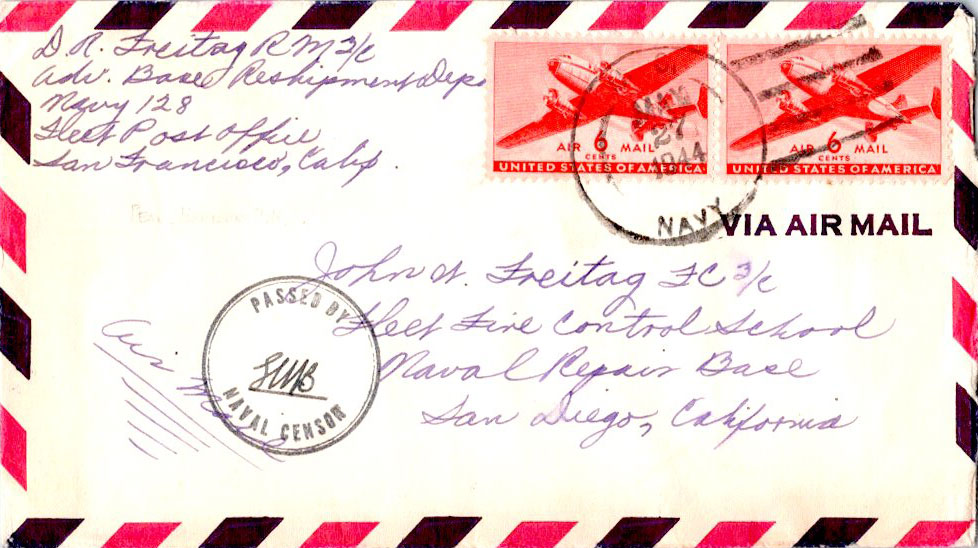 D. R. Freitag RM 3/c
Adv. Base Reshipment Depo
Navy 128
Fleet Post Office
San Francisco, Calif.
6
AIR MAIL
CENTS
UNITED STATES OF AMERICA
6
AIR MAIL
CENTS
UNITED STATES OF AMERICA
MAY
27
1944
NAVY
VIA AIR MAIL
John W. Freitag FC 3/c
Fleet Fire Control School
Naval Repair Base
San Diego, California
Air Mail
PASSED BY
NAVAL CENSOR